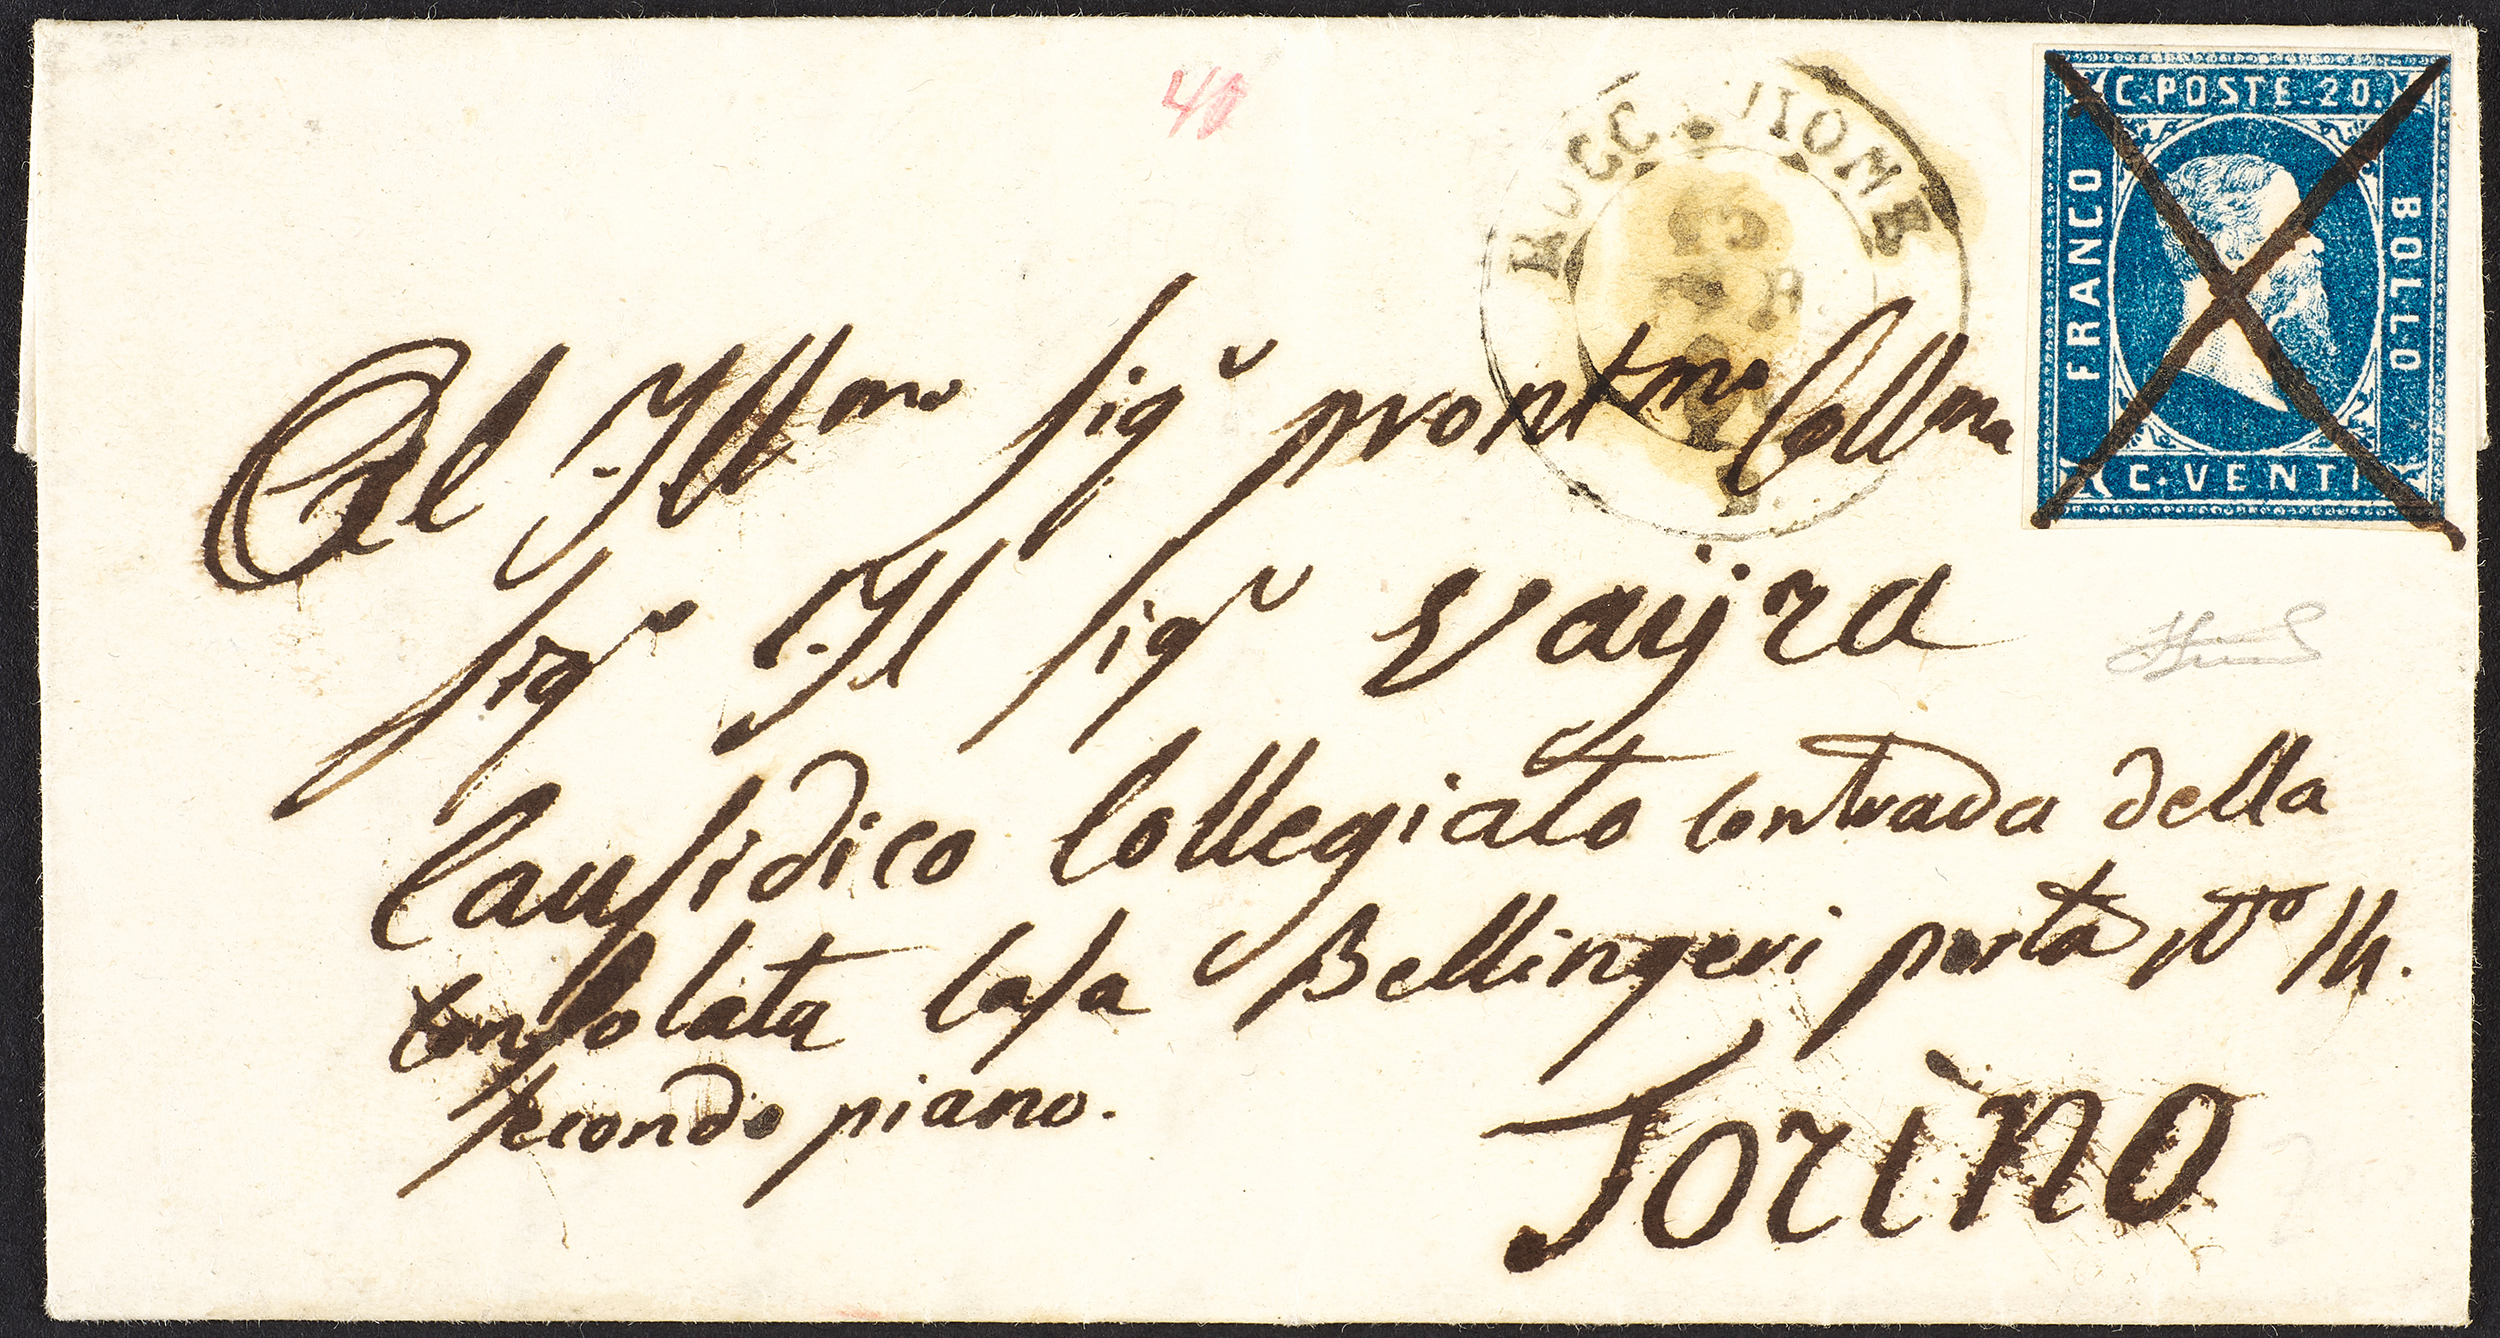 40
C. POSTE 20.
FRANCO
BOLLO
C. VENTI
Al Illmo Sigr pront.mo Coll.mo
Sigr Il Sigr Vayra
Causidico Collegiato Contrada della
Consolata Casa Bellingeri porta No 14.
Secondo piano.
Torino